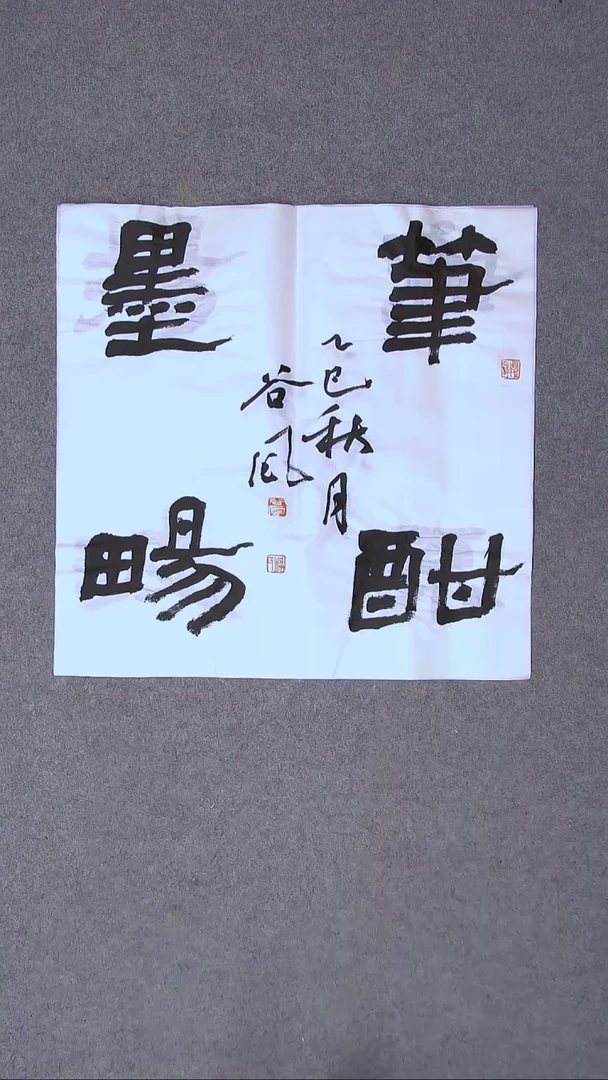 筆酣
墨暢
乙巳秋月
谷风